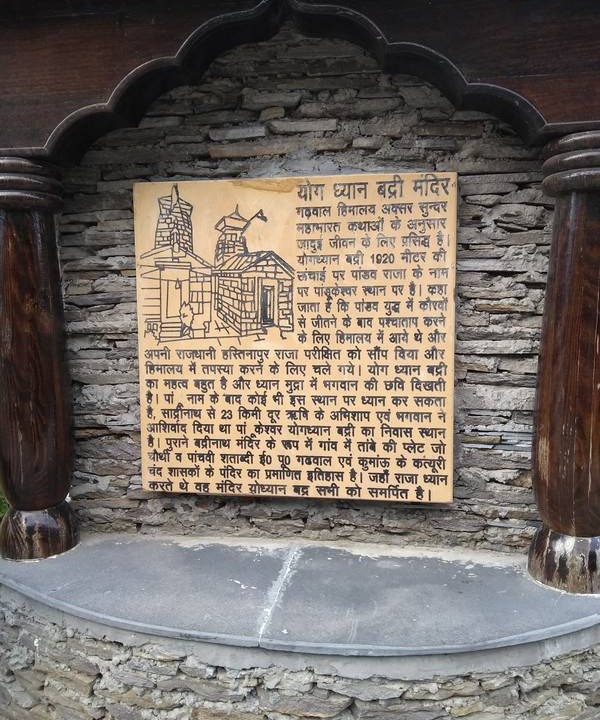 योग ध्यान बद्री मंदिर
गढ़वाल हिमालय अक्सर सुन्दर
महाभारत कथाओं के अनुसार
जादुई जीवन के लिए प्रसिद्ध है।
योगध्यान बद्री 1920 मीटर की
ऊंचाई पर पांडव राजा के नाम
पर पांडुकेश्वर स्थान पर है। कहा
जाता है कि पांडव युद्ध में कौरवों
से जीतने के बाद पश्चाताप करने
के लिए हिमालय में आये थे और
अपनी राजधानी हस्तिनापुर राजा परीक्षित को सौंप दिया और
हिमालय में तपस्या करने के लिए चले गये। योग ध्यान बद्री
का महत्व बहुत है और ध्यान मुद्रा में भगवान की छवि दिखती
है। पां नाम के बाद कोई भी इस स्थान पर ध्यान कर सकता
है, साद्रीनाथ से 23 किमी दूर ऋषि के अभिशाप एवं भगवान ने
आशिर्वाद दिया था पां केश्वर योगध्यान बद्री का निवास स्थान
है। पुराने बद्रीनाथ मंदिर के रूप में गांव में तांबे की प्लेट जो
चौथी व पांचवी शताब्दी ई0 पू0 गढवाल एवं कुमांऊ के कत्यूरी
चंद शासकों के पंदिर का प्रमाणित इतिहास है। जहाँ राजा ध्यान
करते थे वह मंदिर योध्यान बद्र सभी को समर्पित है।